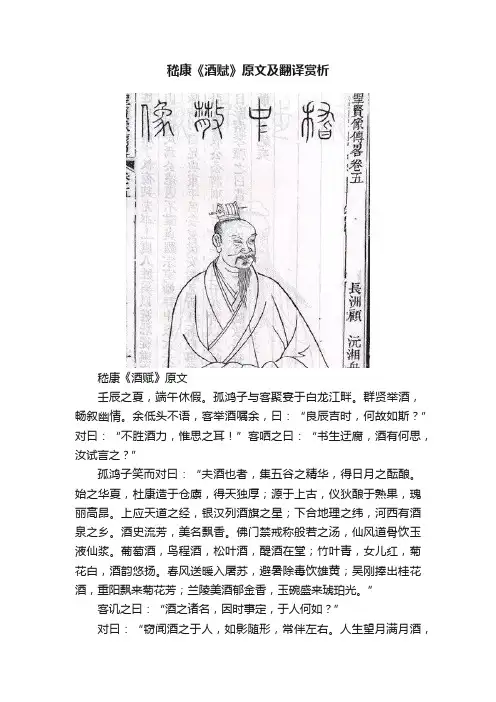 嵇康《酒赋》原文及翻译赏析
嵇中散像
聖賢像傳畧卷五
長洲顧 沅湘
嵇康《酒赋》原文
壬辰之夏，端午休假。孤鸿子与客聚宴于白龙江畔。群贤举酒，
畅叙幽情。余低头不语，客举酒嘱余，曰：“良辰吉时，何故如斯？”
对曰：“不胜酒力，惟思之耳！”客哂之曰：“书生迂腐，酒有何思，
汝试言之？”
孤鸿子笑而对曰：“夫酒也者，集五谷之精华，得日月之酝酿。
始之华夏，杜康造于仓廒，得天独厚；源于上古，仪狄酿于熟果，瑰
丽高昂。上应天道之经，银汉列酒旗之星；下合地理之纬，河西有酒
泉之乡。酒史流芳，美名飘香。佛门禁戒称般若之汤，仙风道骨饮玉
液仙浆。葡萄酒，乌程酒，松叶酒，醍酒在堂；竹叶青，女儿红，菊
花白，酒韵悠扬。春风送暖入屠苏，避暑除毒饮雄黄；吴刚捧出桂花
酒，重阳飘来菊花芳；兰陵美酒郁金香，玉碗盛来琥珀光。”
客讥之曰：“酒之诸名，因时事定，于人何如？”
对曰：“窃闻酒之于人，如影随形，常伴左右。人生望月满月酒，